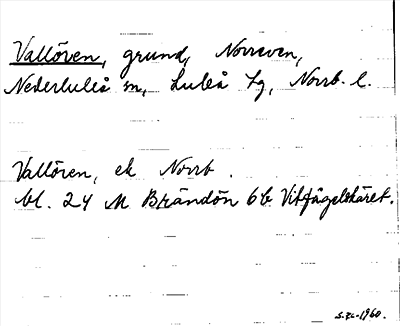 Vallöven, grund, Norreven,
Nederluleå sn, Luleå tg, Norrb. l.
Vallören, ek Norrb.
bl. 24 M Brändön 6b Vitfågelskäret.
1960.